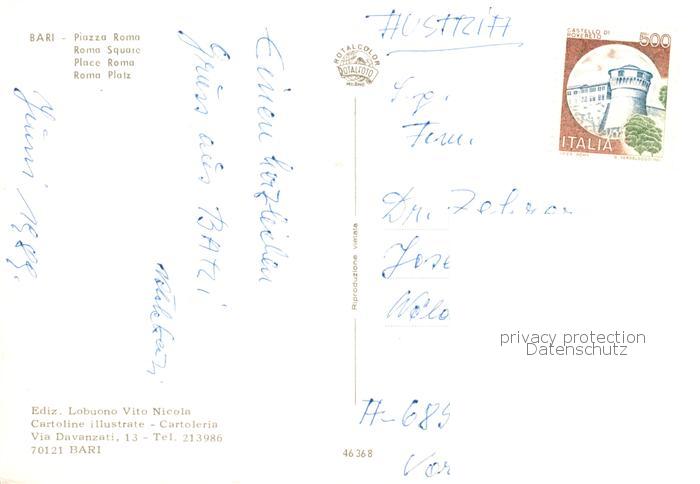 BARI - Piazza Roma
Roma Square
Place Roma
Roma Platz
Einen herzlichen
Gruss aus BARI
Juni 1989.
Ediz. Lobuono Vito Nicola
Cartoline illustrate - Cartoleria
Via Davanzati, 13 - Tel. 213986
70121 BARI
ROTALCOLOR
ROTALFOTO
MILANO
Riproduzione vietata
46368
AUSTRIA
CASTELLO DI
ROVERETO
500
ITALIA
Fam.
Dr.
Jose
A-689
Vor
privacy protection
Datenschutz